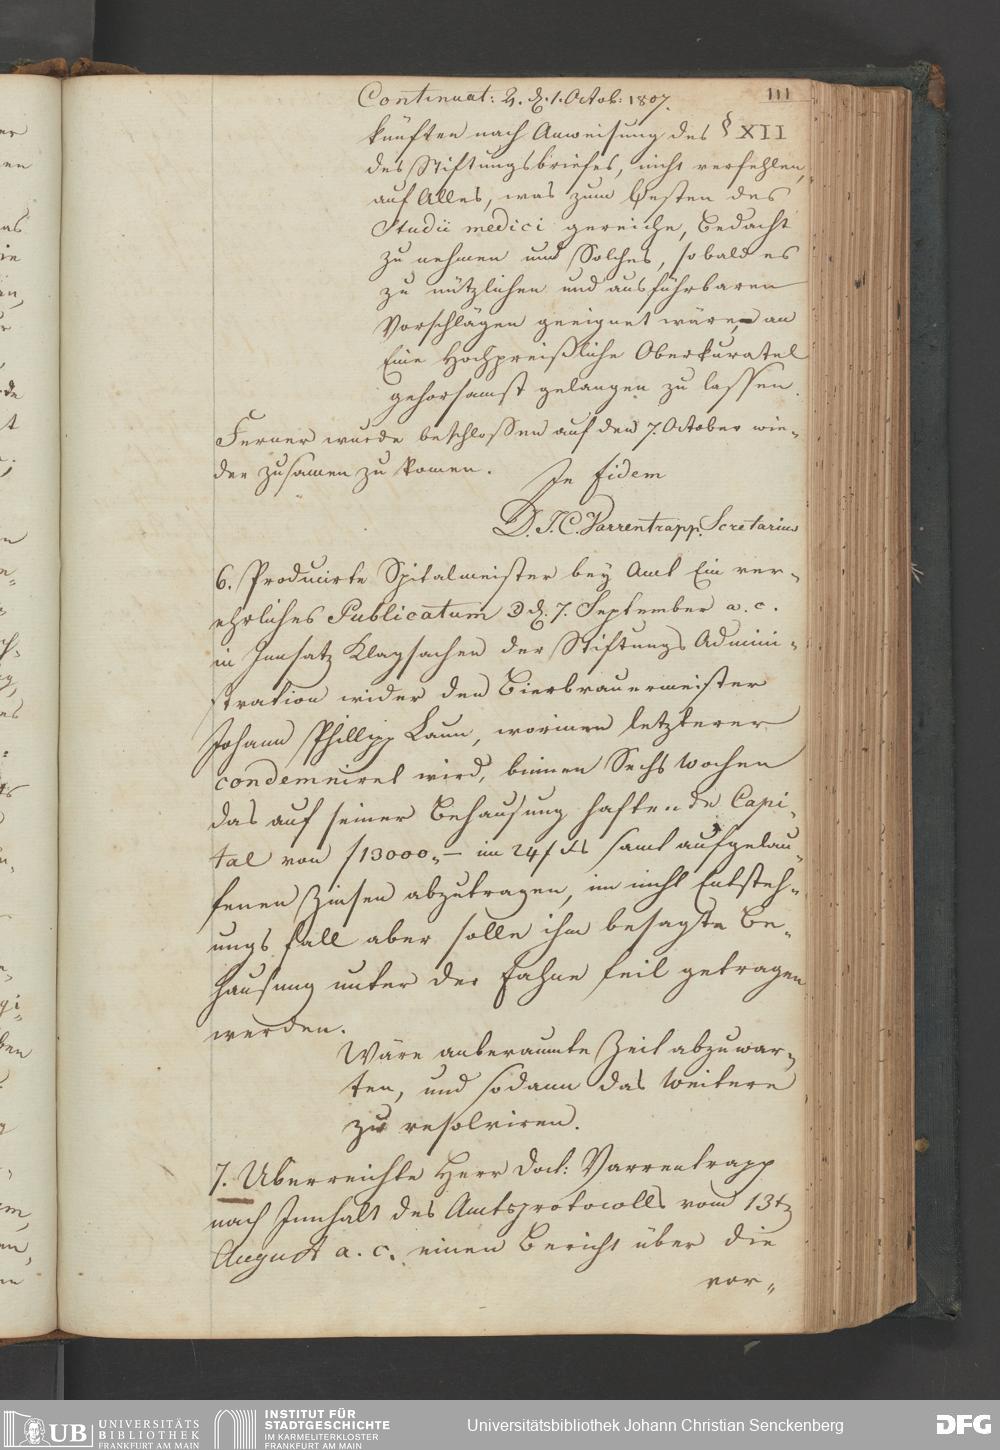 Continuat: 2. d. 1. Octob: 1807.
111
künften nach Anweisung des § XII
des Stiftungsbriefes, nicht verfehlen,
auf Alles, was zum Besten des
Studii medici gereiche, Bedacht
zu nehmen und Solches, sobald es
zu nützlichen und ausführbaren
Vorschlägen geeignet wäre, an
Eine Hochpreißliche Oberkuratel
gehorsamst gelangen zu lassen.
Ferner wurde beschlossen auf den 7. October wie-
der zusamen zu komen.
In fidem
D. J. C. Varrentrapp. Secretarius
6. Producirte Spitalmeister bey Amt Ein ver-
ehrliches Publicatum d. 7. September a. c.
in Innsatz Klagsachen der Stiftungs Admini-
stration wider den Bierbrauermeister
Johann Phillipp Laun, worinnen letzterer
condemniret wird, binnen Sechs Wochen
das auf seiner Behausung haftende Capi-
tal von f 13000,- im 24 f samt aufgelau-
fenen Zinsen abzutragen, im nicht Entsteh-
ungs fall aber solle ihm besagte Be-
hausung unter der Fahne feil getragen
werden.
Wäre anberaumte Zeit abzuwar-
ten, und sodann das Weitere
zu resolviren.
7. Überreichte Herr Doct: Varrentrapp
nach Innhalt des Amtsprotocolls vom 13t
August a. c. einen Bericht über die
vor-
UB UNIVERSITÄTS
BIBLIOTHEK
FRANKFURT AM MAIN
INSTITUT FÜR
STADTGESCHICHTE
IM KARMELITERKLOSTER
FRANKFURT AM MAIN
Universitätsbibliothek Johann Christian Senckenberg
DFG